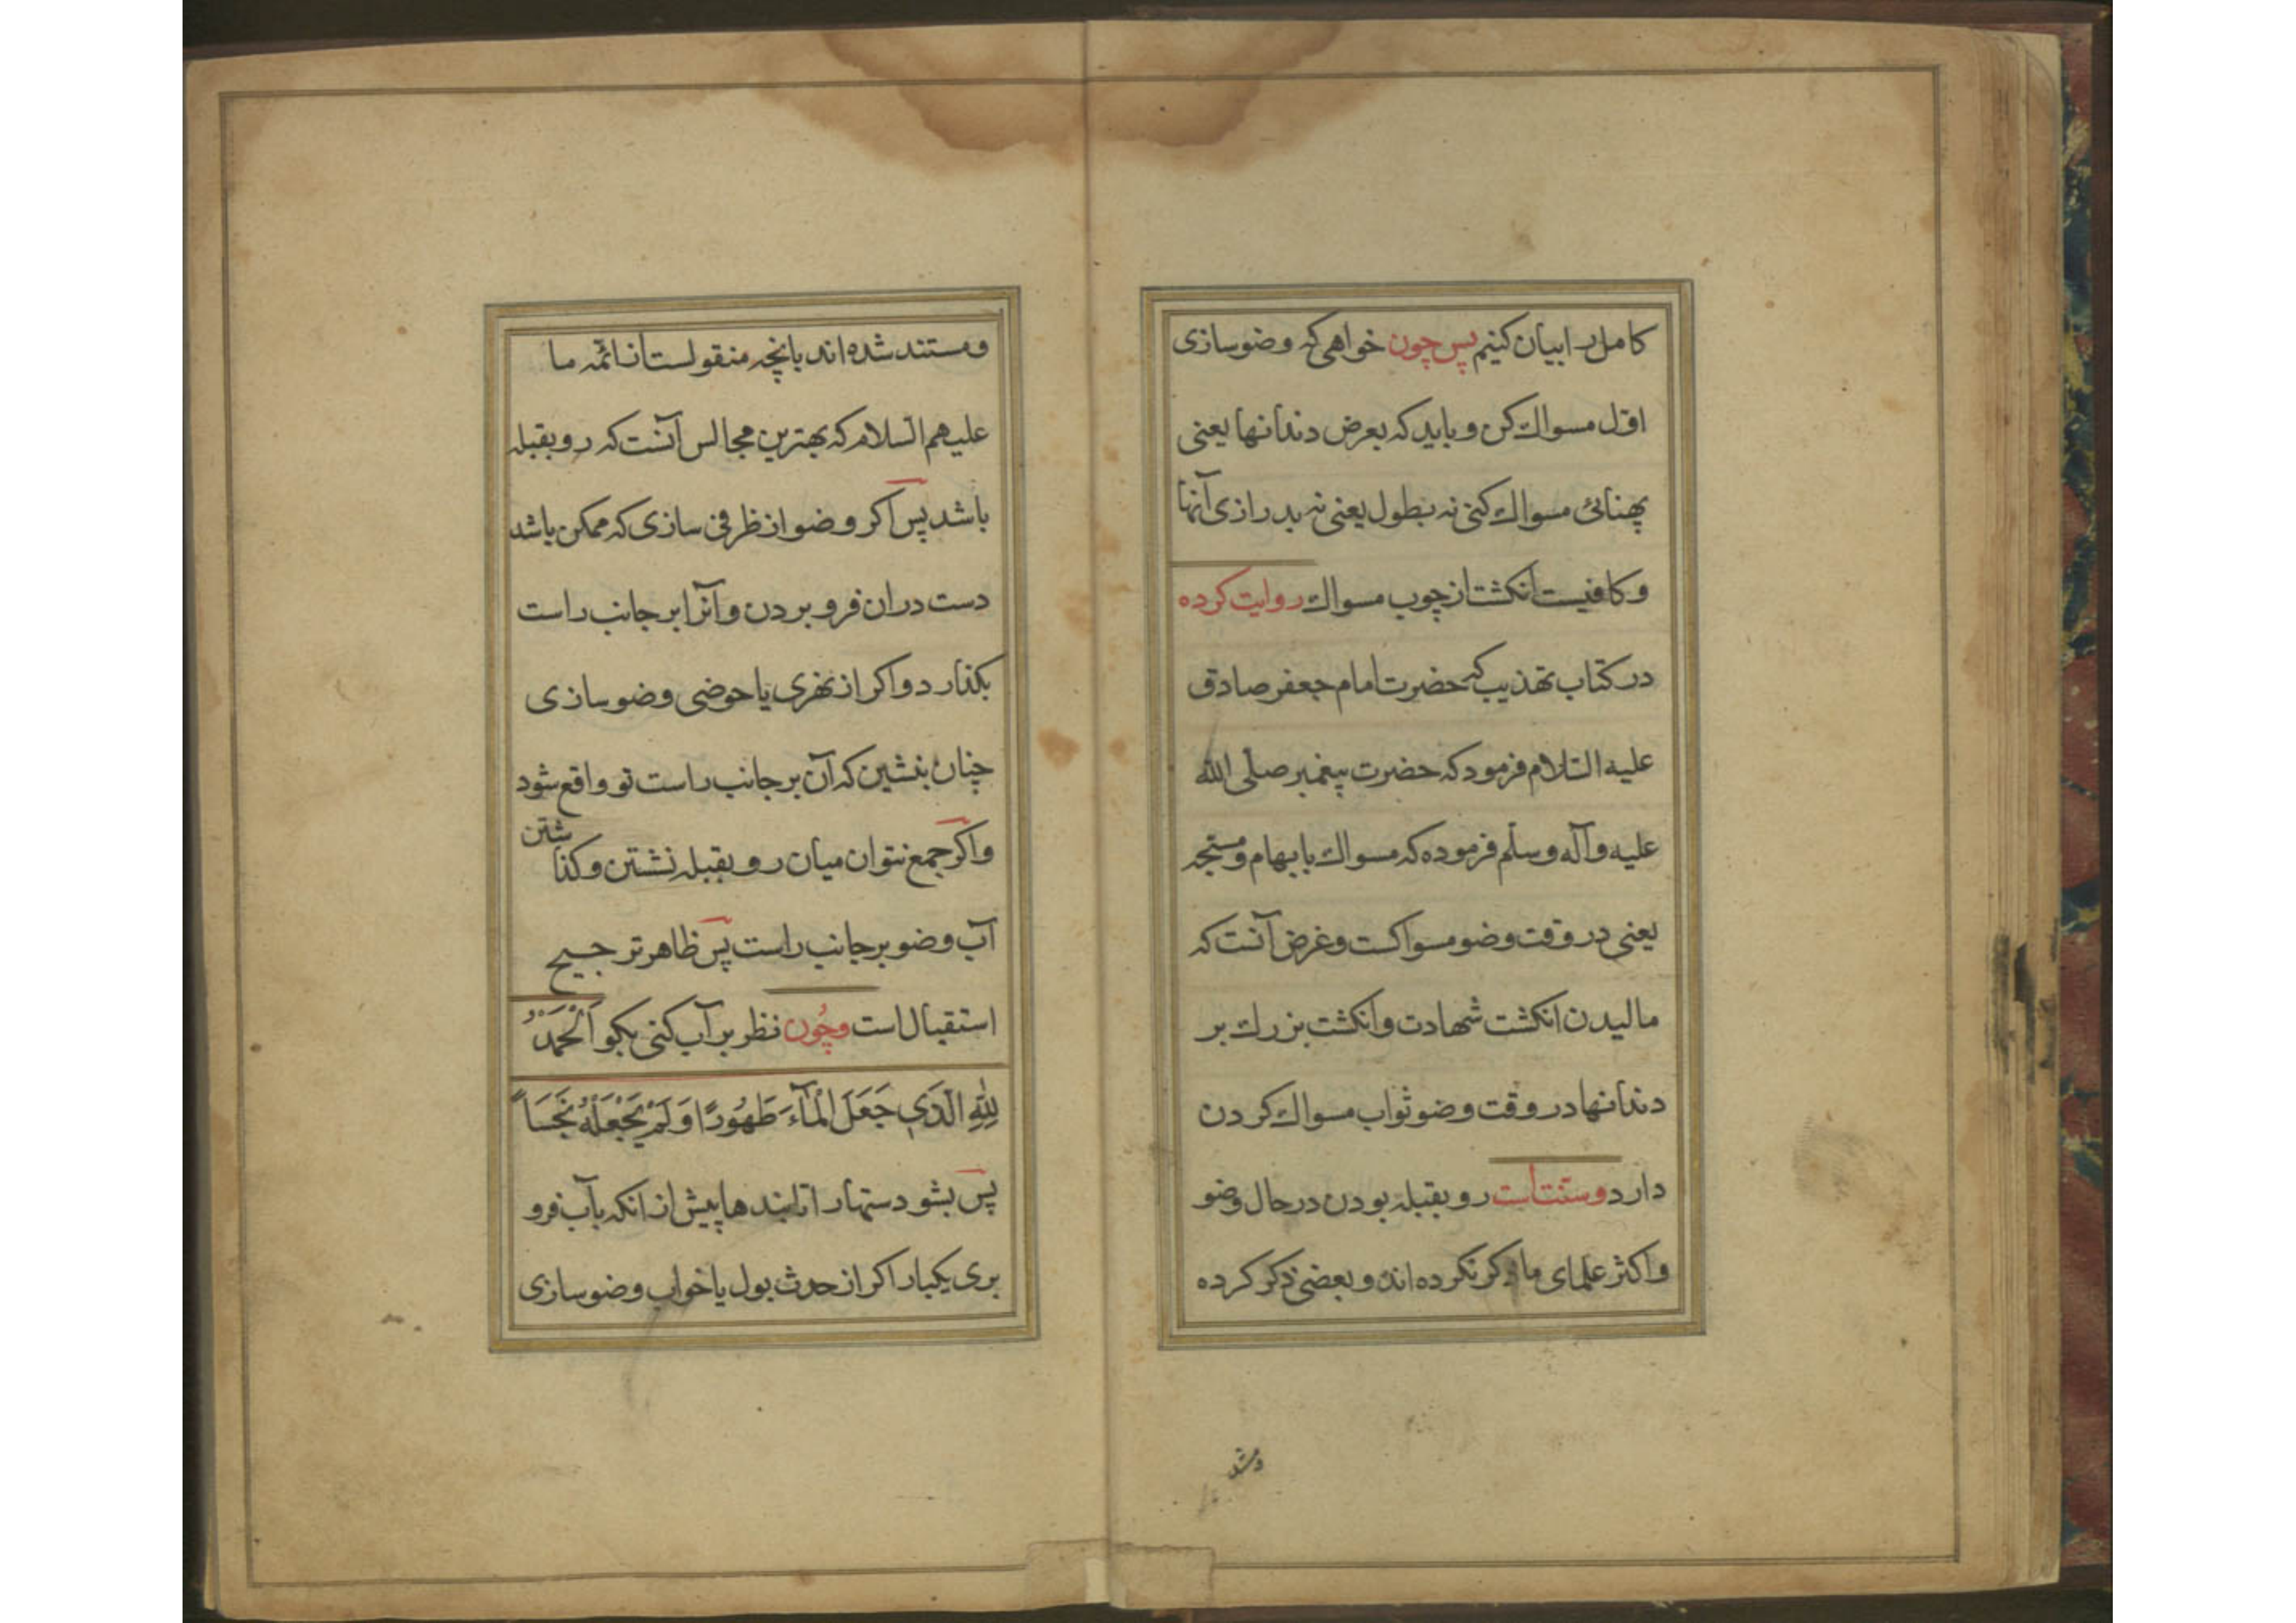 کامل را بیان کنیم پس چون خواهی که وضو سازی
اوّل مسواک کن و باید که بعرض دندانها یعنی
پهنائی مسواک کنی نه بطول یعنی نه بدرازی آنها
و کافیست انکشت از چوب مسواک روایت کرده
در کتاب تهذیب که حضرت امام جعفر صادق
علیه السّلام فرمود که حضرت پیغمبر صلّی الله
علیه وآله وسلّم فرموده که مسواک بابهام و مسبّحه
یعنی در وقت وضو مسواکست و غرض آنست که
مالیدن انکشت شهادت و انکشت بزرک بر
دندانها در وقت وضو ثواب مسواک کردن
دارد و سنّت است رو بقبله بودن در حال وضو
و اکثر علمای ما ذکر نکرده اند و بعضی ذکر کرده
و مستند شده اند بانچه منقولست از ائمّه ما
علیهم السلام که بهترین مجالس آنست که رو بقبله
باشد پس اکر وضو از ظرفی سازی که ممکن باشد
دست دران فرو بردن و آنرا بر جانب راست
بکذار و اکر از نهری یا حوضی وضو سازی
چنان بنشین که آن بر جانب راست تو واقع شود
و اکر جمع نتوان میان رو بقبله نشتن و کذاشتن
آب وضو بر جانب راست پس ظاهر ترجیح
استقبال است و چُون نظر بر آب کنی بکو اَلْحَمْدُ
لِلّهِ الَّذی جَعَلَ الْمآءَ طَهُورًا وَ لَمْ یَجْعَلْهُ نَجَسَاً
پس بشو دستها را تا بندها پیش از انکه بآب فرو
بری یکبار اکر از حدث بول یا خواب وضو سازی